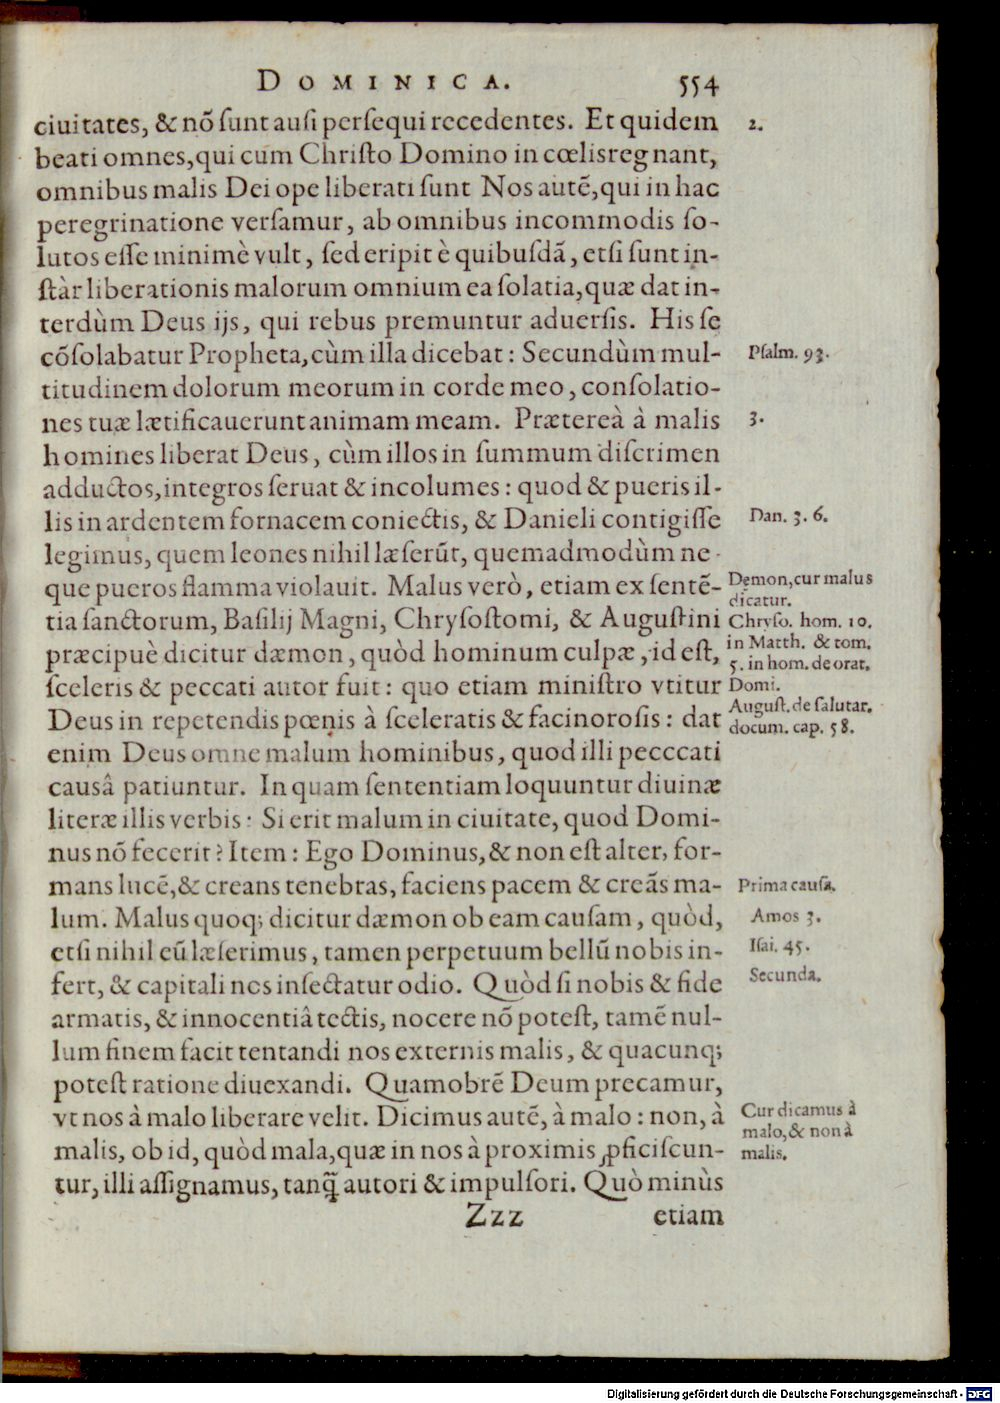 DOMINICA. 554
ciuitates, & nõ ſunt auſi perſequi recedentes. Et quidem
beati omnes, qui cum Chriſto Domino in cœlis regnant,
omnibus malis Dei ope liberati ſunt Nos autẽ, qui in hac
peregrinatione verſamur, ab omnibus incommodis ſo-
lutos eſſe minimè vult, ſed eripit è quibuſdã, etſi ſunt in-
ſtàr liberationis malorum omnium ea ſolatia, quæ dat in-
terdùm Deus ijs, qui rebus premuntur aduerſis. His ſe
cõſolabatur Propheta, cùm illa dicebat: Secundùm mul-
titudinem dolorum meorum in corde meo, conſolatio-
nes tuæ lætificauerunt animam meam. Prætereà à malis
homines liberat Deus, cùm illos in ſummum diſcrimen
adductos, integros ſeruat & incolumes: quod & pueris il-
lis in ardentem fornacem coniectis, & Danieli contigiſſe
legimus, quem leones nihil læſerũt, quemadmodùm ne-
que pueros flamma violauit. Malus verò, etiam ex ſentẽ-
tia ſanctorum, Baſilij Magni, Chryſoſtomi, & Auguſtini
præcipuè dicitur dæmon, quòd hominum culpæ, id eſt,
ſceleris & peccati autor fuit: quo etiam miniſtro vtitur
Deus in repetendis pœnis à ſceleratis & facinoroſis: dat
enim Deus omne malum hominibus, quod illi pecccati
causâ patiuntur. In quam ſententiam loquuntur diuinæ
literæ illis verbis: Si erit malum in ciuitate, quod Domi-
nus nõ fecerit? Item: Ego Dominus, & non eſt alter, for-
mans lucẽ, & creans tenebras, faciens pacem & creãs ma-
lum. Malus quoq; dicitur dæmon ob eam cauſam, quòd,
etſi nihil eũ læſerimus, tamen perpetuum bellũ nobis in-
fert, & capitali nos inſectatur odio. Quòd ſi nobis & fide
armatis, & innocentiâ tectis, nocere nõ poteſt, tamẽ nul-
lum finem facit tentandi nos externis malis, & quacunq;
poteſt ratione diuexandi. Quamobrẽ Deum precamur,
vt nos à malo liberare velit. Dicimus autẽ, à malo: non, à
malis, ob id, quòd mala, quæ in nos à proximis ꝓficiſcun-
tur, illi aſſignamus, tanq̃ autori & impulſori. Quò minùs
Zzz etiam
2.
Pſalm. 93.
3.
Dan. 3. 6.
Dęmon, cur malus
dicatur.
Chryſo. hom. 10.
in Matth. & tom.
5. in hom. de orat.
Domi.
Auguſt. de ſalutar.
docum. cap. 58.
Prima cauſa.
Amos 3.
Iſai. 45.
Secunda.
Cur dicamus à
malo, & non à
malis.
Digitalisierung gefördert durch die Deutsche Forschungsgemeinschaft - DFG